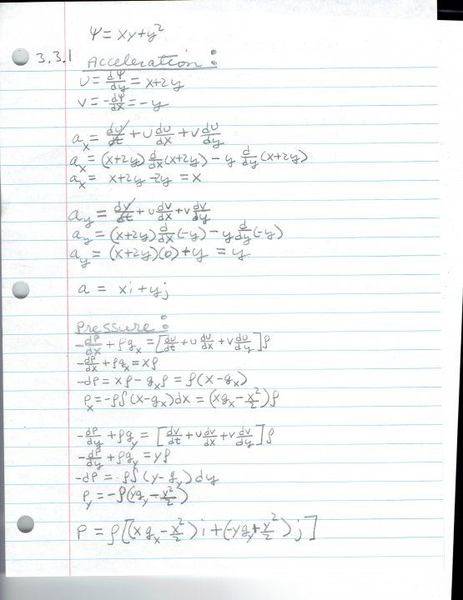 Ψ = xy + y²
3.3.1 Acceleration:
U = dΨ/dy = x+2y
V = -dΨ/dx = -y
a_x = dU/dt + U dU/dx + V dU/dy
a_x = (x+2y) d/dx (x+2y) - y d/dy (x+2y)
a_x = x+2y-2y = x
a_y = dV/dt + U dV/dx + V dV/dy
a_y = (x+2y) d/dx (-y) - y d/dy (-y)
a_y = (x+2y)(0) + y = y
a = xi + yj
Pressure:
-dP/dx + ρg_x = [dU/dt + U dU/dx + V dU/dy] ρ
-dP/dx + ρg_x = xρ
-dP = xρ - g_xρ = ρ(x-g_x)
P_x = -ρ∫(x-g_x)dx = (xg_x - x²/2)ρ
-dP/dy + ρg_y = [dV/dt + U dV/dx + V dV/dy] ρ
-dP/dy + ρg_y = yρ
-dP = ρ∫(y-g_y)dy
P_y = -ρ(yg_y - y²/2)
P = ρ[(xg_x - x²/2)i + (-yg_y + y²/2)j]